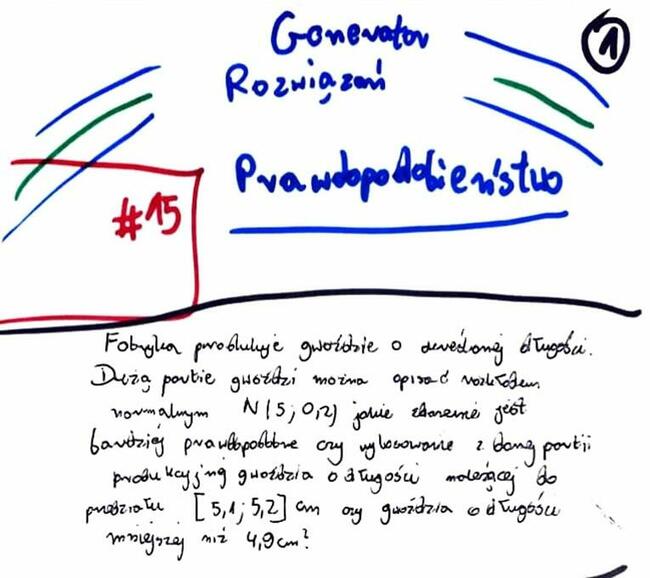 Generator
①
Rozwiązań
Prawdopodobieństwo
#15
Fabryka produkuje gwoździe o określonej długości.
Dużą partię gwoździ można opisać rozkładem
normalnym N(5; 0,2) jakie zdarzenie jest
bardziej prawdopodobne czy wylosowanie z danej partii
produkcyjnej gwoździa o długości należącej do
przedziału [5,1; 5,2] cm czy gwoździa o długości
mniejszej niż 4,9cm?